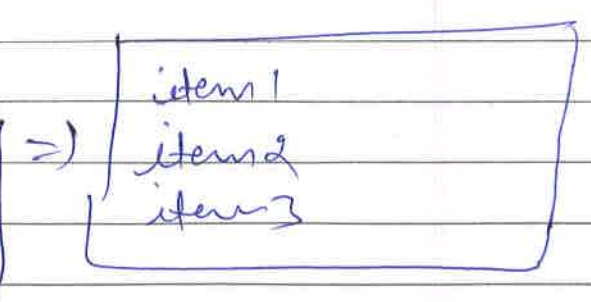 item1
=> item2
item3